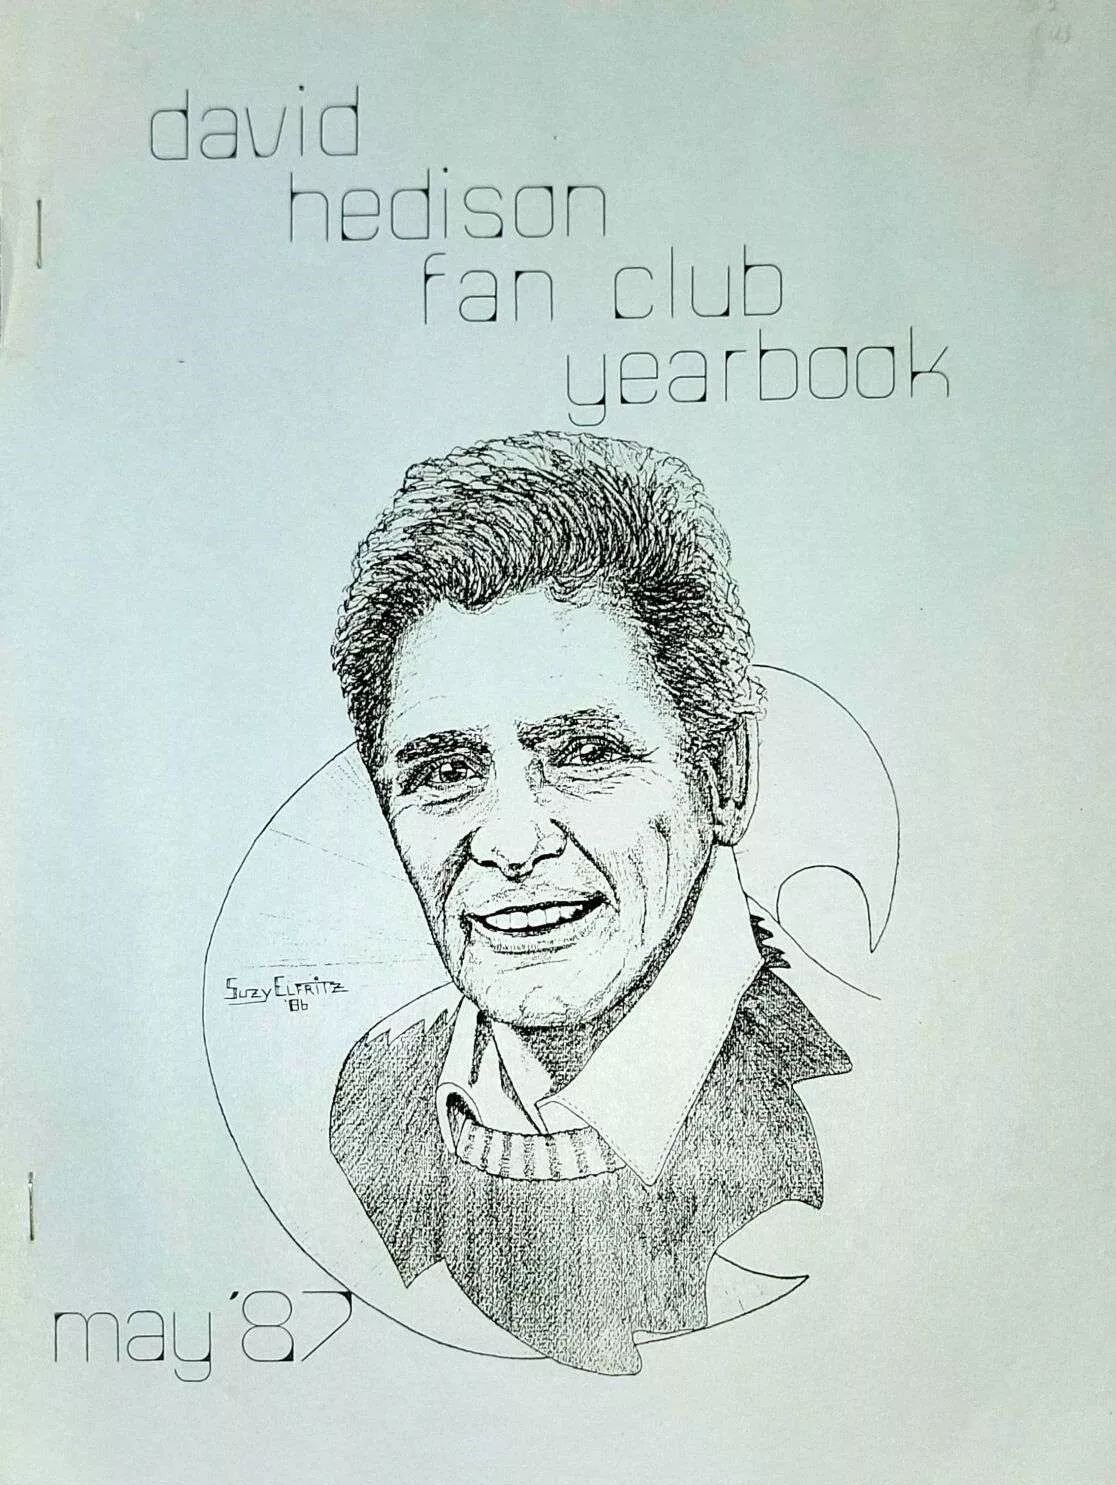 david
hedison
fan club
yearbook
Suzy Elfritz
'86
may '87